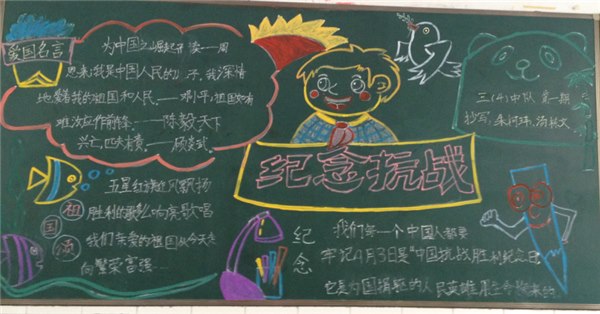 爱国名言
为中国之崛起而读----周
恩来;我是中国人民的儿子,我深情
地爱着我的祖国和人民.----邓小平;祖国如有
难汝应作前锋.----陈毅 天下
兴亡,匹夫有责。----顾炎武.
纪念抗战
三(4)中队 第一期
抄写:
祖国颂
五星红旗迎风飘扬
胜利的歌声多么响亮歌唱
我们亲爱的祖国从今天走
向繁荣富强----
纪念
我们每一个中国人都要
牢记9月3日是“中国抗战胜利纪念日”
它是为国捐躯的人民英雄用生命换来的.